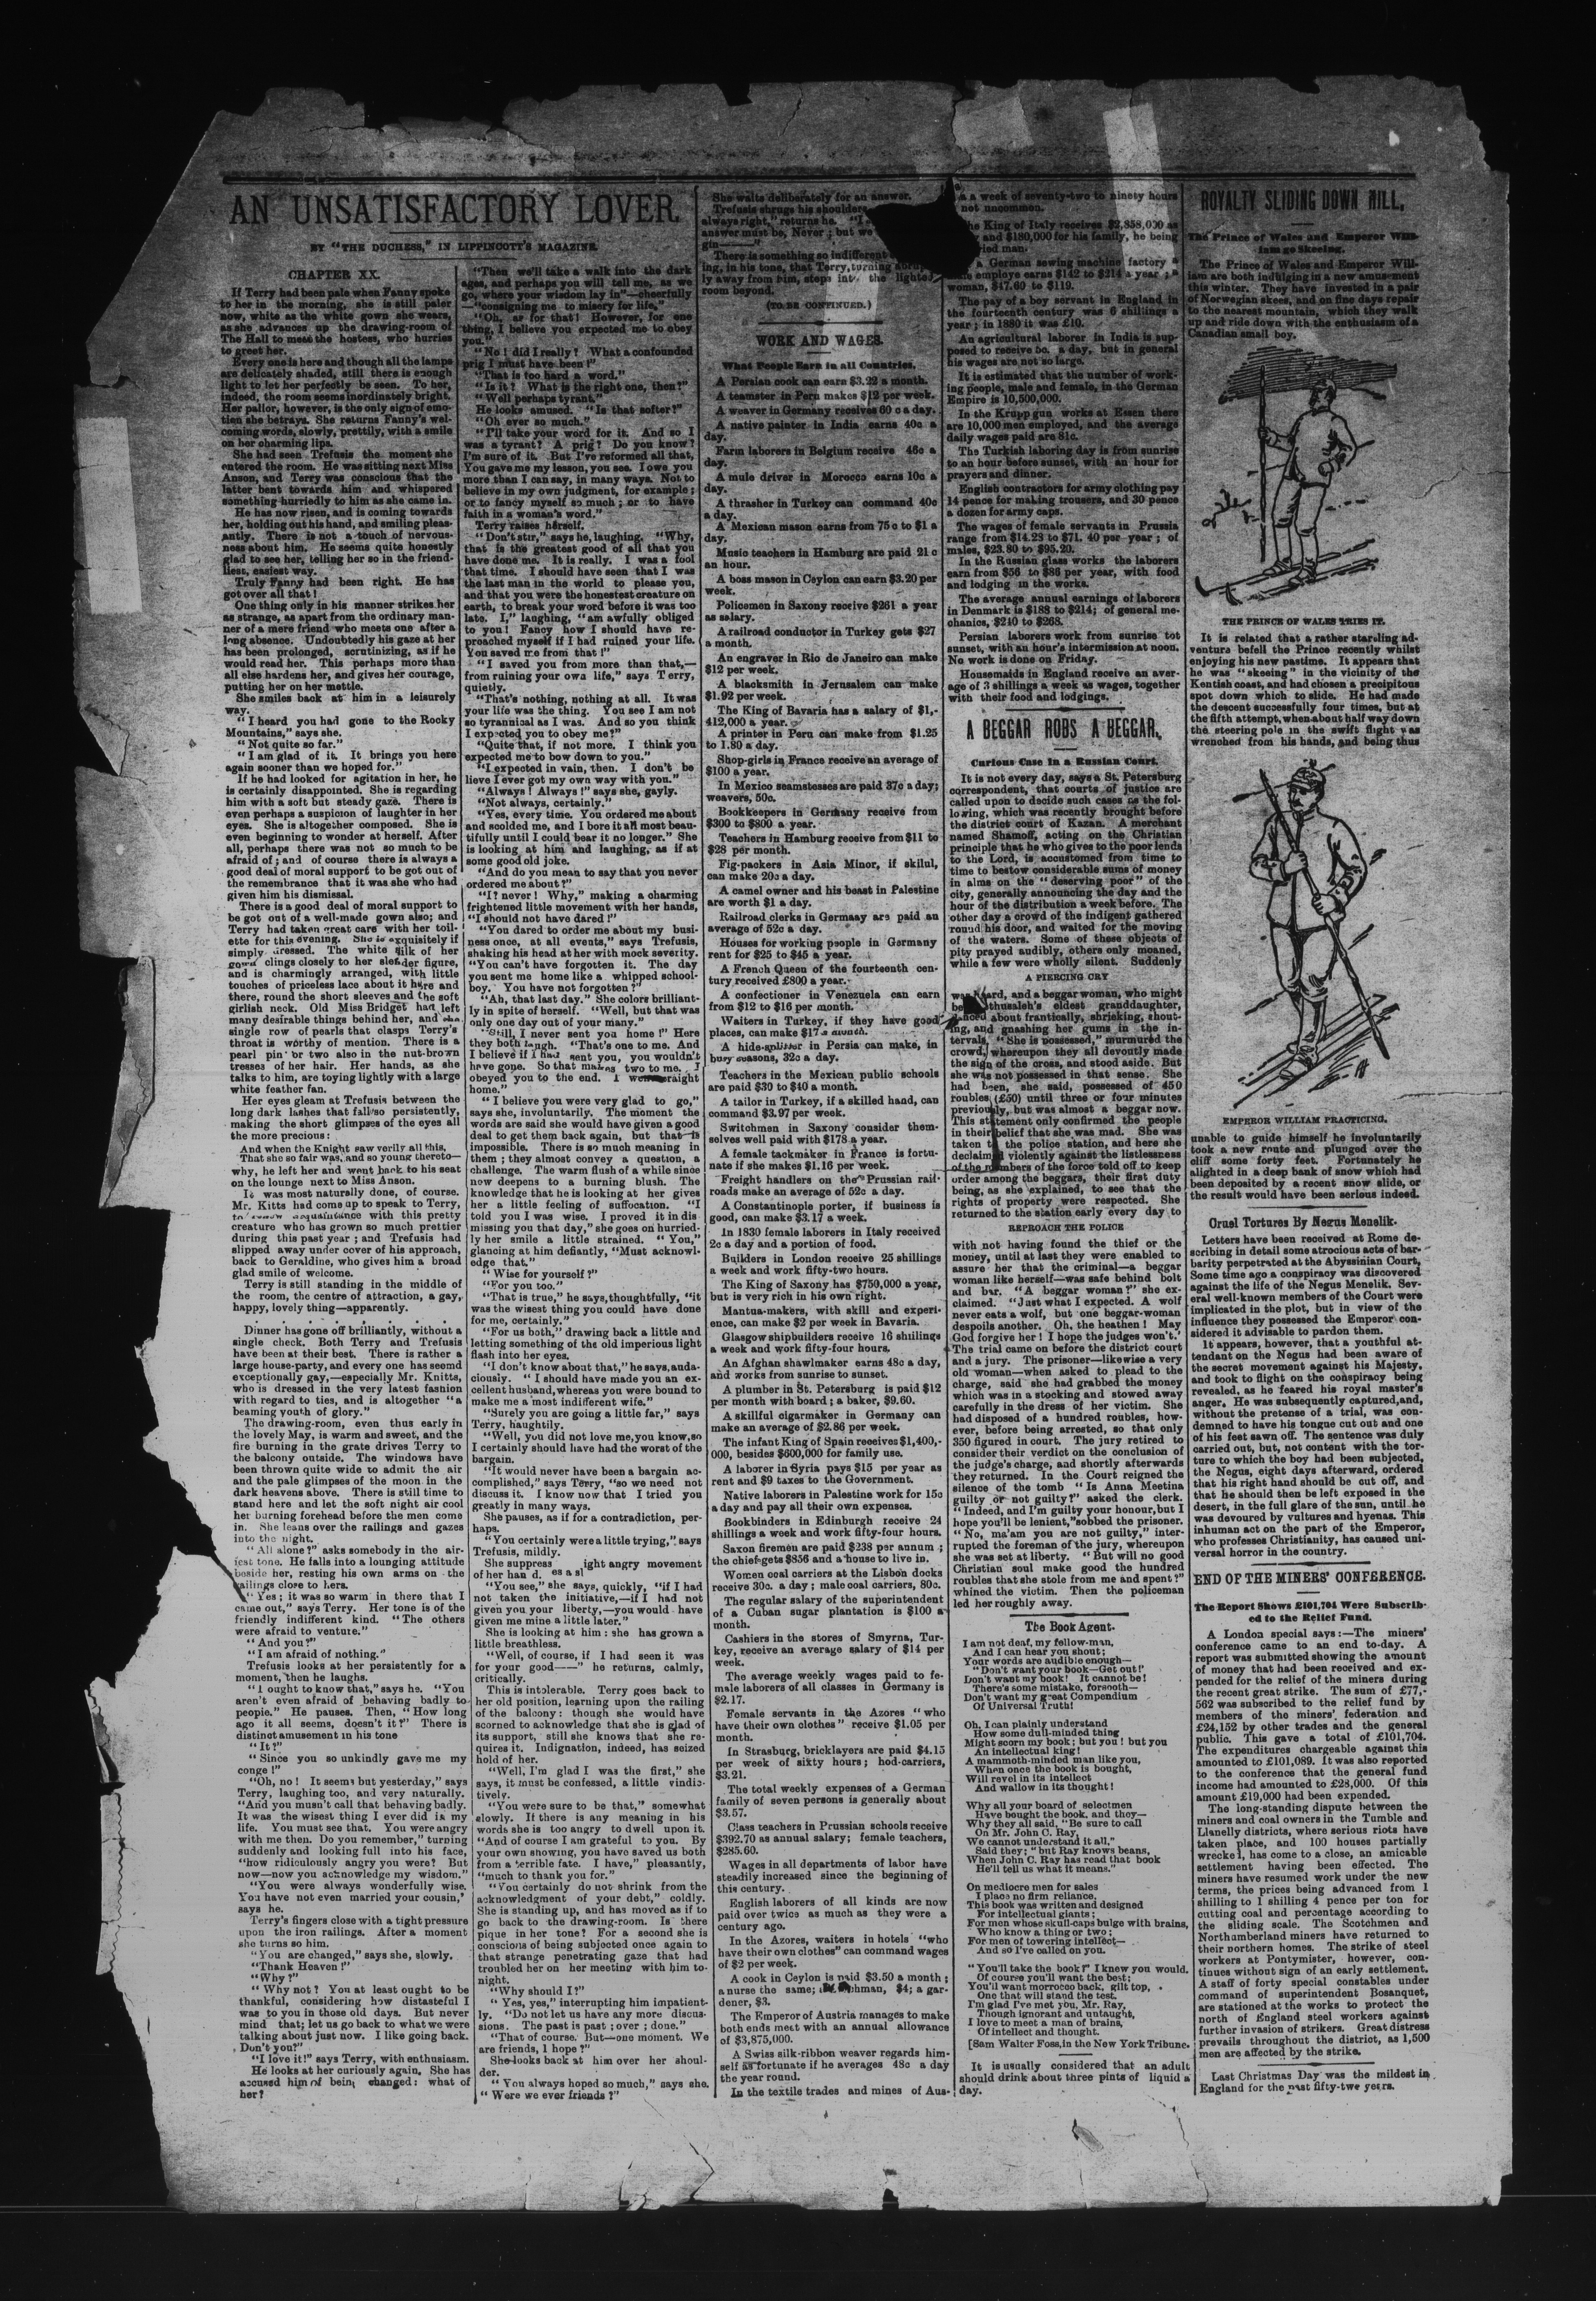 AN UNSATISFACTORY LOVER.
BY "THE DUCHESS," IN LIPPINCOTT'S MAGAZINE.
CHAPTER XX.
If Terry had been pale when Fanny spoke
to her in the morning, she is still paler
now, white as the white gown she wears,
as she advances up the drawing-room of
The Hall to meet the hostess, who hurries
to greet her.
Every one is here and though all the lamps
are delicately shaded, still there is enough
light to let her perfectly be seen. To her,
indeed, the room seems inordinately bright.
Her pallor, however, is the only sign of emo-
tion she betrays. She returns Fanny's wel-
coming words, slowly, prettily, with a smile
on her charming lips.
She had seen Trefusis the moment she
entered the room. He was sitting next Miss
Anson, and Terry was conscious that the
latter bent towards him and whispered
something hurriedly to him as she came in.
He has now risen, and is coming towards
her, holding out his hand, and smiling pleas-
antly. There is not a touch of nervous-
ness about him. He seems quite honestly
glad to see her, telling her so in the friend-
liest, easiest way.
Truly Fanny had been right. He has
got over all that!
One thing only in his manner strikes her
as strange, as apart from the ordinary man-
ner of a mere friend who meets one after a
long absence. Undoubtedly his gaze at her
has been prolonged, scrutinizing, as if he
would read her. This perhaps more than
all else hardens her, and gives her courage,
putting her on her mettle.
She smiles back at him in a leisurely
way.
"I heard you had gone to the Rocky
Mountains," says she.
"Not quite so far."
"I am glad of it. It brings you here
again sooner than we hoped for."
If he had looked for agitation in her, he
is certainly disappointed. She is regarding
him with a soft but steady gaze. There is
even perhaps a suspicion of laughter in her
eyes. She is altogether composed. She is
even beginning to wonder at herself. After
all, perhaps there was not so much to be
afraid of; and of course there is always a
good deal of moral support to be got out of
the remembrance that it was she who had
given him his dismissal.
There is a good deal of moral support to
be got out of a well-made gown also; and
Terry had taken great care with her toil-
ette for this evening. She is exquisitely if
simply dressed. The white silk of her
gown clings closely to her slender figure,
and is charmingly arranged, with little
touches of priceless lace about it here and
there, round the short sleeves and the soft
girlish neck. Old Miss Bridget had left
many desirable things behind her, and the
single row of pearls that clasps Terry's
throat is worthy of mention. There is a
pearl pin or two also in the nut-brown
tresses of her hair. Her hands, as she
talks to him, are toying lightly with a large
white feather fan.
Her eyes gleam at Trefusis between the
long dark lashes that fall so persistently,
making the short glimpses of the eyes all
the more precious:
And when the Knight saw verily all this,
That she so fair was, and so young thereto—
why, he left her and went back to his seat
on the lounge next to Miss Anson.
It was most naturally done, of course.
Mr. Kitts had come up to speak to Terry,
to renew acquaintance with this pretty
creature who has grown so much prettier
during this past year; and Trefusis had
slipped away under cover of his approach,
back to Geraldine, who gives him a broad
glad smile of welcome.
Terry is still standing in the middle of
the room, the centre of attraction, a gay,
happy, lovely thing—apparently.
. . . . . . . .
Dinner has gone off brilliantly, without a
single check. Both Terry and Trefusis
have been at their best. There is rather a
large house-party, and every one has seemd
exceptionally gay,—especially Mr. Knitts,
who is dressed in the very latest fashion
with regard to ties, and is altogether "a
beaming youth of glory."
The drawing-room, even thus early in
the lovely May, is warm and sweet, and the
fire burning in the grate drives Terry to
the balcony outside. The windows have
been thrown quite wide to admit the air
and the pale glimpses of the moon in the
dark heavens above. There is still time to
stand here and let the soft night air cool
her burning forehead before the men come
in. She leans over the railings and gazes
into the night.
"All alone?" asks somebody in the air-
iest tone. He falls into a lounging attitude
beside her, resting his own arms on the
railings close to hers.
"Yes; it was so warm in there that I
came out," says Terry. Her tone is of the
friendly indifferent kind. "The others
were afraid to venture."
"And you?"
"I am afraid of nothing."
Trefusis looks at her persistently for a
moment, then he laughs.
"I ought to know that," says he. "You
aren't even afraid of behaving badly to
people." He pauses. Then, "How long
ago it all seems, doesn't it?" There is
distinct amusement in his tone
"It?"
"Since you so unkindly gave me my
conge!"
"Oh, no! It seems but yesterday," says
Terry, laughing too, and very naturally.
"And you musn't call that behaving badly.
It was the wisest thing I ever did in my
life. You must see that. You were angry
with me then. Do you remember," turning
suddenly and looking full into his face,
"how ridiculously angry you were? But
now—now you acknowledge my wisdom."
"You were always wonderfully wise.
You have not even married your cousin,'
says he.
Terry's fingers close with a tight pressure
upon the iron railings. After a moment
she turns so him.
"You are changed," says she, slowly.
"Thank Heaven!"
"Why?"
"Why not? You at least ought to be
thankful, considering how distasteful I
was to you in those old days. But never
mind that; let us go back to what we were
talking about just now. I like going back.
Don't you?"
"I love it!" says Terry, with enthusiasm.
He looks at her curiously again. She has
accused him of being changed: what of
her?
"Then we'll take a walk into the dark
ages, and perhaps you will tell me, as we
go, where your wisdom lay in"—cheerfully
—"consigning me to misery for life."
"Oh, as for that! However, for one
thing, I believe you expected me to obey
you."
"No! did I really? What a confounded
prig I must have been!"
"That is too hard a word."
"Is it? What is the right one, then?"
"Well perhaps tyrant."
He looks amused. "Is that softer?"
"Oh ever so much."
"I'll take your word for it. And so I
was a tyrant? A prig? Do you know?
I'm sure of it. But I've reformed all that,
You gave me my lesson, you see. I owe you
more than I can say, in many ways. Not to
believe in my own judgment, for example;
or to fancy myself so much; or to have
faith in a woman's word."
Terry raises herself.
"Don't stir," says he, laughing. "Why,
that is the greatest good of all that you
have done me. It is really. I was a fool
that time. I should have seen that I was
the last man in the world to please you,
and that you were the honestest creature on
earth, to break your word before it was too
late. I," laughing, "am awfully obliged
to you! Fancy how I should have re-
proached myself if I had ruined your life.
You saved me from that!"
"I saved you from more than that,—
from ruining your own life," says Terry,
quietly.
"That's nothing, nothing at all. It was
your life was the thing. You see I am not
so tyrannical as I was. And so you think
I expected you to obey me?"
"Quite that, if not more. I think you
expected me to bow down to you."
"I expected in vain, then. I don't be
lieve I ever got my own way with you."
"Always! Always!" says she, gayly.
"Not always, certainly."
"Yes, every time. You ordered me about
and scolded me, and I bore it all most beau-
tifully until I could bear it no longer." She
is looking at him and laughing, as if at
some good old joke.
"And do you mean to say that you never
ordered me about?"
"I? never! Why," making a charming
frightened little movement with her hands,
"I should not have dared!"
"You dared to order me about my busi-
ness once, at all events," says Trefusis,
shaking his head at her with mock severity.
"You can't have forgotten it. The day
you sent me home like a whipped school-
boy. You have not forgotten?"
"Ah, that last day." She colors brilliant-
ly in spite of herself. "Well, but that was
only one day out of your many."
"Still, I never sent you home!" Here
they both laugh. "That's one to me. And
I believe if I had sent you, you wouldn't
have gone. So that makes two to me. I
obeyed you to the end. I went straight
home."
"I believe you were very glad to go,"
says she, involuntarily. The moment the
words are said she would have given a good
deal to get them back again, but that is
impossible. There is so much meaning in
them; they almost convey a question, a
challenge. The warm flush of a while since
now deepens to a burning blush. The
knowledge that he is looking at her gives
her a little feeling of suffocation. "I
told you I was wise. I proved it in dis
missing you that day," she goes on hurried-
ly her smile a little strained. "You,"
glancing at him defiantly, "Must acknowl-
edge that."
"Wise for yourself?"
"For you too."
"That is true," he says, thoughtfully, "it
was the wisest thing you could have done
for me, certainly."
"For us both," drawing back a little and
letting something of the old imperious light
flash into her eyes.
"I don't know about that," he says, auda-
ciously. "I should have made you an ex-
cellent husband, whereas you were bound to
make me a most indifferent wife."
"Surely you are going a little far," says
Terry, haughtily.
"Well, you did not love me, you know, so
I certainly should have had the worst of the
bargain.
"It would never have been a bargain ac-
complished," says Terry, "so we need not
discuss it. I know now that I tried you
greatly in many ways.
She pauses, as if for a contradiction, per-
haps.
"You certainly were a little trying," says
Trefusis, mildly.
She suppress ight angry movement
of her han d. es a sl
"You see," she says, quickly, "if I had
not taken the initiative,—if I had not
given you your liberty,—you would have
given me mine a little later."
She is looking at him: she has grown a
little breathless.
"Well, of course, if I had seen it was
for your good——" he returns, calmly,
critically.
This is intolerable. Terry goes back to
her old position, learning upon the railing
of the balcony: though she would have
scorned to acknowledge that she is glad of
its support, still she knows that she re-
quires it. Indignation, indeed, has seized
hold of her.
"Well, I'm glad I was the first," she
says, it must be confessed, a little vindic-
tively.
"You were sure to be that," somewhat
slowly. If there is any meaning in his
words she is too angry to dwell upon it.
"And of course I am grateful to you. By
your own showing, you have saved us both
from a terrible fate. I have," pleasantly,
"much to thank you for."
"You certainly do not shrink from the
acknowledgment of your debt," coldly.
She is standing up, and has moved as if to
go back to the drawing-room. Is there
pique in her tone? For a second she is
conscious of being subjected once again to
that strange penetrating gaze that had
troubled her on her meeting with him to-
night.
"Why should I?"
"Yes, yes," interrupting him impatient-
ly. "Do not let us have any more discus-
sions. The past is past; over; done."
"That of course. But—one moment. We
are friends, I hope?"
She looks back at him over her shoul-
der.
"You always hoped so much," says she.
"Were we ever friends?"
She waits deliberately for an answer.
Trefusis shrugs his shoulders
always right," returns he.
answer must be, Never; but we
gin——"
There is something so indifferent
ing, in his tone, that Terry, turning abrup
ly away from him, steps into the lighted
room beyond.
(TO BE CONTINUED.)
WORK AND WAGES.
What People Earn in all Countries.
A Persian cook can earn $3.22 a month.
A teamster in Peru makes $12 per week.
A weaver in Germany receives 60 c a day.
A native painter in India earns 40c a
day.
Farm laborers in Belgium receive 46c a
day.
A mule driver in Morocco earns 10c a
day.
A thrasher in Turkey can command 40c
a day.
A Mexican mason earns from 75 c to $1 a
day.
Music teachers in Hamburg are paid 21 c
an hour.
A boss mason in Ceylon can earn $3.20 per
week.
Policemen in Saxony receive $261 a year
as salary.
A railroad conductor in Turkey gets $27
a month.
An engraver in Rio de Janeiro can make
$12 per week.
A blacksmith in Jerusalem can make
$1.92 per week.
The King of Bavaria has a salary of $1,-
412,000 a year.
A printer in Peru can make from $1.25
to 1.80 a day.
Shop-girls in France receive an average of
$100 a year.
In Mexico seamstesses are paid 37c a day;
weavers, 50c.
Bookkeepers in Germany receive from
$300 to $800 a year.
Teachers in Hamburg receive from $11 to
$28 per month.
Fig-packers in Asia Minor, if skilul,
can make 20c a day.
A camel owner and his beast in Palestine
are worth $1 a day.
Railroad clerks in Germaay are paid an
average of 52c a day.
Houses for working people in Germany
rent for $25 to $45 a year.
A French Queen of the fourteenth cen-
tury received £800 a year.
A confectioner in Venezuela can earn
from $12 to $16 per month.
Waiters in Turkey, if they have good
places, can make $17 a month.
A hide-splitter in Persia can make, in
busy seasons, 32c a day.
Teachers in the Mexican public schools
are paid $30 to $40 a month.
A tailor in Turkey, if a skilled hand, can
command $3.97 per week.
Switchmen in Saxony consider them-
selves well paid with $178 a year.
A female tackmaker in France is fortu-
nate if she makes $1.16 per week.
Freight handlers on the Prussian rail-
roads make an average of 52c a day.
A Constantinople porter, if business is
good, can make $3.17 a week.
In 1830 female laborers in Italy received
2c a day and a portion of food.
Builders in London receive 25 shillings
a week and work fifty-two hours.
The King of Saxony has $750,000 a year,
but is very rich in his own right.
Mantua-makers, with skill and experi-
ence, can make $2 per week in Bavaria.
Glasgow shipbuilders receive 16 shilings
a week and work fifty-four hours.
An Afghan shawlmaker earns 48c a day,
and works from sunrise to sunset.
A plumber in St. Petersburg is paid $12
per month with board; a baker, $9.60.
A skillful cigarmaker in Germany can
make an average of $2.86 per week.
The infant King of Spain receives $1,400,-
000, besides $600,000 for family use.
A laborer in Syria pays $15 per year as
rent and $9 taxes to the Government.
Native laborers in Palestine work for 15c
a day and pay all their own expenses.
Bookbinders in Edinburgh receive 24
shillings a week and work fifty-four hours.
Saxon firemen are paid $238 per annum;
the chief gets $856 and a house to live in.
Women coal carriers at the Lisbon docks
receive 30c. a day; male coal carriers, 80c.
The regular salary of the superintendent
of a Cuban sugar plantation is $100 a
month.
Cashiers in the stores of Smyrna, Tur-
key, receive an average salary of $14 per
week.
The average weekly wages paid to fe-
male laborers of all classes in Germany is
$2.17.
Female servants in the Azores "who
have their own clothes" receive $1.05 per
month.
In Strasburg, bricklayers are paid $4.15
per week of sixty hours; hod-carriers,
$3.21.
The total weekly expenses of a German
family of seven persons is generally about
$3.57.
Class teachers in Prussian schools receive
$392.70 as annual salary; female teachers,
$285.60.
Wages in all departments of labor have
steadily increased since the beginning of
this century.
English laborers of all kinds are now
paid over twice as much as they were a
century ago.
In the Azores, waiters in hotels "who
have their own clothes" can command wages
of $2 per week.
A cook in Ceylon is paid $3.50 a month;
a nurse the same; hman, $4; a gar-
dener, $3.
The Emperor of Austria manages to make
both ends meet with an annual allowance
of $3,875,000.
A Swiss silk-ribbon weaver regards him-
self as fortunate if he averages 48c a day
the year round.
In the textile trades and mines of Aus-
a a week of seventy-two to ninety hours
not uncommon.
he King of Italy receives $2,858,000 as
and $180,000 for his family, he being
ried man.
a German sewing machine factory a
employe earns $142 to $214 a year; a
woman, $47.60 to $119.
The pay of a boy servant in England in
the fourteenth century was 6 shillings a
year; in 1880 it was £10.
An agricultural laborer in India is sup-
posed to receive 5c. a day, but in general
his wages are not so large.
It is estimated that the number of work-
ing people, male and female, in the German
Empire is 10,500,000.
In the Krupp gun works at Essen there
are 10,000 men employed, and the average
daily wages paid are 81c.
The Turkish laboring day is from sunrise
to an hour before sunset, with an hour for
prayers and dinner.
English contractors for army clothing pay
14 pence for making trousers, and 30 pence
a dozen for army caps.
The wages of female servants in Prussia
range from $14.28 to $71. 40 per year; of
males, $23.80 to $95.20.
In the Russian glass works the laborers
earn from $56 to $86 per year, with food
and lodging in the works.
The average annual earnings of laborers
in Denmark is $188 to $214; of general me-
chanics, $240 to $268.
Persian laborers work from sunrise tot
sunset, with an hour's intermission at noon.
No work is done on Friday.
Housemaids in England receive an aver-
age of 3 shillings a week as wages, together
with their food and lodgings.
A BEGGAR ROBS A BEGGAR.
Curious Case in a Russian Court.
It is not every day, says a St. Petersburg
correspondent, that courts of justice are
called upon to decide such cases as the fol-
lowing, which was recently brought before
the district court of Kazan. A merchant
named Shamoff, acting on the Christian
principle that he who gives to the poor lends
to the Lord, is accustomed from time to
time to bestow considerable sums of money
in alms on the "deserving poor" of the
city, generally announcing the day and the
hour of the distribution a week before. The
other day a crowd of the indigent gathered
round his door, and waited for the moving
of the waters. Some of these objects of
pity prayed audibly, others only moaned,
while a few were wholly silent. Suddenly
A PIERCING CRY
was heard, and a beggar woman, who might
be thusaleh's eldest granddaughter,
danced about frantically, shrieking, shout-
ing, and gnashing her gums in the in-
tervals. "She is possessed," murmured the
crowd, whereupon they all devoutly made
the sign of the cross, and stood aside. But
she was not possessed in that sense. She
had been, she said, possessed of 450
roubles (£50) until three or four minutes
previously, but was almost a beggar now.
This statement only confirmed the people
in their belief that she was mad. She was
taken t the police station, and here she
declaimed violently against the listlessness
of the members of the force told off to keep
order among the beggars, their first duty
being, as she explained, to see that the
rights of property were respected. She
returned to the station every day to
REPROACH THE POLICE
with not having found the thief or the
money, until at last they were enabled to
assure her that the criminal—a beggar
woman like herself—was safe behind bolt
and bar. "A beggar woman?" she ex-
claimed. "Just what I expected. A wolf
never eats a wolf, but one beggar-woman
despoils another. Oh, the heathen! May
God forgive her! I hope the judges won't.'
The trial came on before the district court
and a jury. The prisoner—likewise a very
old woman—when asked to plead to the
charge, said she had grabbed the money
which was in a stocking and stowed away
carefully in the dress of her victim. She
had disposed of a hundred roubles, how-
ever, before being arrested, so that only
350 figured in court. The jury retired to
consider their verdict on the conclusion of
the judge's charge, and shortly afterwards
they returned. In the Court reigned the
silence of the tomb "Is Anna Meetina
guilty or not guilty?" asked the clerk.
"Indeed, and I'm guilty your honour, but I
hope you'll be lenient," sobbed the prisoner.
"No, ma'am you are not guilty," inter-
rupted the foreman of the jury, whereupon
she was set at liberty. "But will no good
Christian soul make good the hundred
roubles that she stole from me and spent?"
whined the victim. Then the policeman
led her roughly away.
The Book Agent.
I am not deaf, my fellow-man,
And I can hear you shout;
Your words are audible enough—
"Don't want your book—Get out!'
Don't want my book! It cannot be!
There's some mistake, forsooth—
Don't want my great Compendium
Of Universal Truth!
Oh, I can plainly understand
How some dull-minded thing
Might scorn my book; but you! but you
An intellectual king!
A mammoth-minded man like you,
When once the book is bought,
Will revel in its intellect
And wallow in its thought!
Why all your board of selectmen
Have bought the book, and they—
Why they all said, "Be sure to call
On Mr. John C. Ray,
We cannot understand it all,"
Said they; "but Ray knows beans,
When John C. Ray has read that book
He'll tell us what it means."
On mediocre men for sales
I place no firm reliance,
This book was written and designed
For intellectual giants;
For men whose skull-caps bulge with brains,
Who know a thing or two;
For men of towering intellect—
And so I've called on you.
"You'll take the book?" I knew you would.
Of course you'll want the best;
You'll want morrocco back, gilt top,
One that will stand the test.
I'm glad I've met you, Mr. Ray,
Though ignorant and untaught,
I love to meet a man of brains,
Of intellect and thought.
[Sam Walter Foss, in the New York Tribune.
It is usually considered that an adult
should drink about three pints of liquid a
day.
ROYALTY SLIDING DOWN HILL.
The Prince of Wales and Emperor Will-
iam go Skeeing.
The Prince of Wales and Emperor Will-
iam are both indulging in a new amusement
this winter. They have invested in a pair
of Norwegian skees, and on fine days repair
to the nearest mountain, which they walk
up and ride down with the enthusiasm of a
Canadian small boy.
THE PRINCE OF WALES TRIES IT.
It is related that a rather starsling ad-
venture befell the Prince recently whilst
enjoying his new pastime. It appears that
he was "skeeing" in the vicinity of the
Kentish coast, and had chosen a precipitous
spot down which to slide. He had made
the descent successfully four times, but at
the fifth attempt, when about half way down
the steering pole in the swift flight was
wrenched from his hands, and being thus
EMPEROR WILLIAM PRACTICING.
unable to guide himself he involuntarily
took a new route and plunged over the
cliff some forty feet. Fortunately he
alighted in a deep bank of snow which had
been deposited by a recent snow slide, or
the result would have been serious indeed.
Cruel Tortures By Negus Menelik.
Letters have been received at Rome de-
scribing in detail some atrocious acts of bar-
barity perpetrated at the Abyssinian Court,
Some time ago a conspiracy was discovered
against the life of the Negus Menelik. Sev-
eral well-known members of the Court were
implicated in the plot, but in view of the
influence they possessed the Emperor con-
sidered it advisable to pardon them.
It appears, however, that a youthful at-
tendant on the Negus had been aware of
the secret movement against his Majesty,
and took to flight on the conspiracy being
revealed, as he feared his royal master's
anger. He was subsequently captured, and,
without the pretense of a trial, was con-
demned to have his tongue cut out and one
of his feet sawn off. The sentence was duly
carried out, but, not content with the tor-
ture to which the boy had been subjected,
the Negus, eight days afterward, ordered
that his right hand should be cut off, and
that he should then be left exposed in the
desert, in the full glare of the sun, until he
was devoured by vultures and hyenas. This
inhuman act on the part of the Emperor,
who professes Christianity, has caused uni-
versal horror in the country.
END OF THE MINERS' CONFERENCE.
The Report Shows £101,704 Were Subscrib-
ed to the Relief Fund.
A London special says:—The miners'
conference came to an end to-day. A
report was submitted showing the amount
of money that had been received and ex-
pended for the relief of the miners during
the recent great strike. The sum of £77,-
562 was subscribed to the relief fund by
members of the miners' federation and
£24,152 by other trades and the general
public. This gave a total of £101,704.
The expenditures chargeable against this
amounted to £101,089. It was also reported
to the conference that the general fund
income had amounted to £28,000. Of this
amount £19,000 had been expended.
The long-standing dispute between the
miners and coal owners in the Tumble and
Llanelly districts, where serious riots have
taken place, and 100 houses partially
wrecked, has come to a close, an amicable
settlement having been effected. The
miners have resumed work under the new
terms, the prices being advanced from 1
shilling to 1 shilling 4 pence per ton for
cutting coal and percentage according to
the sliding scale. The Scotchmen and
Northumberland miners have returned to
their northern homes. The strike of steel
workers at Pontymister, however, con-
tinues without sign of an early settlement.
A staff of forty special constables under
command of superintendent Bosanquet,
are stationed at the works to protect the
north of England steel workers against
further invasion of strikers. Great distress
prevails throughout the district, as 1,500
men are affected by the strike.
Last Christmas Day was the mildest in
England for the past fifty-two years.